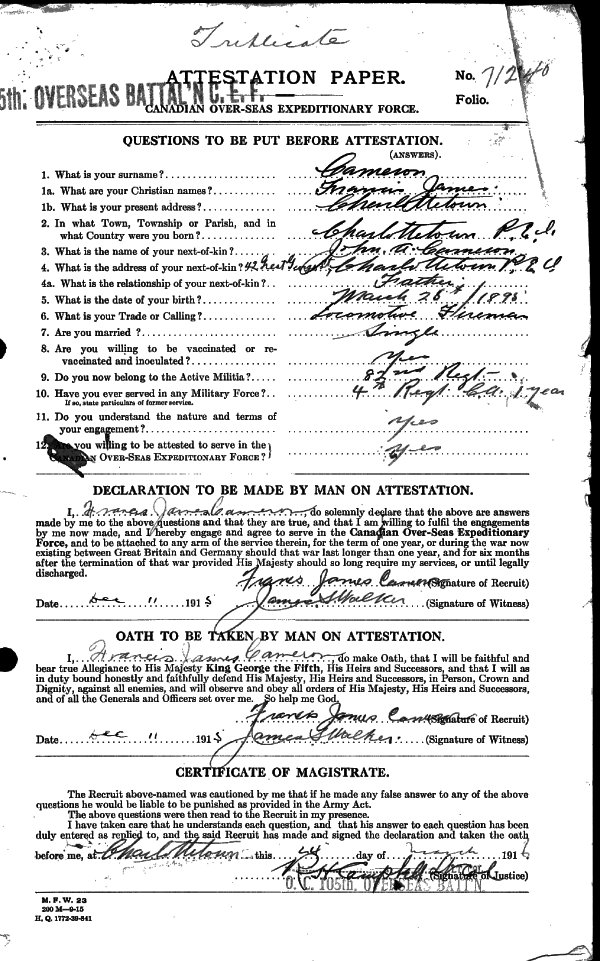 Triplicate
ATTESTATION PAPER. No. 71240
5th. OVERSEAS BATTAL'N C.E.F. Folio.
CANADIAN OVER-SEAS EXPEDITIONARY FORCE.
QUESTIONS TO BE PUT BEFORE ATTESTATION.
(ANSWERS).
1. What is your surname? Cameron
1a. What are your Christian names? Francis James.
1b. What is your present address? Charlottetown
2. In what Town, Township or Parish, and in
what Country were you born? Charlottetown P.E.I.
3. What is the name of your next-of-kin? John A. Cameron
4. What is the address of your next-of-kin? 42 Charlottetown P.E.I
4a. What is the relationship of your next-of-kin? Father
5. What is the date of your birth? March 25th /1895
6. What is your Trade or Calling? Locomotive Fireman
7. Are you married? Single
8. Are you willing to be vaccinated or re-
vaccinated and inoculated? Yes
9. Do you now belong to the Active Militia? 82nd Regt
10. Have you ever served in any Military Force? 4th Regt C.A. 1 year
If so, state particulars of former service.
11. Do you understand the nature and terms of
your engagement? Yes
12. Are you willing to be attested to serve in the
CANADIAN OVER-SEAS EXPEDITIONARY FORCE? Yes
DECLARATION TO BE MADE BY MAN ON ATTESTATION.
I, Francis James Cameron, do solemnly declare that the above are answers
made by me to the above questions and that they are true, and that I am willing to fulfil the engagements
by me now made, and I hereby engage and agree to serve in the Canadian Over-Seas Expeditionary
Force, and to be attached to any arm of the service therein, for the term of one year, or during the war now
existing between Great Britain and Germany should that war last longer than one year, and for six months
after the termination of that war provided His Majesty should so long require my services, or until legally
discharged.
Francis James Cameron (Signature of Recruit)
Date Dec 11 1915 James S Walker (Signature of Witness)
OATH TO BE TAKEN BY MAN ON ATTESTATION.
I, Francis James Cameron, do make Oath, that I will be faithful and
bear true Allegiance to His Majesty King George the Fifth, His Heirs and Successors, and that I will as
in duty bound honestly and faithfully defend His Majesty, His Heirs and Successors, in Person, Crown and
Dignity, against all enemies, and will observe and obey all orders of His Majesty, His Heirs and Successors,
and of all the Generals and Officers set over me. So help me God.
Francis James Cameron (Signature of Recruit)
Date Dec 11 1915 James S Walker. (Signature of Witness)
CERTIFICATE OF MAGISTRATE.
The Recruit above-named was cautioned by me that if he made any false answer to any of the above
questions he would be liable to be punished as provided in the Army Act.
The above questions were then read to the Recruit in my presence.
I have taken care that he understands each question, and that his answer to each question has been
duly entered as replied to, and the said Recruit has made and signed the declaration and taken the oath
before me, at Charlottetown this 24 day of March 1916
(Signature of Justice)
O. C. 105th. OVERSEAS BATT'N.
M. F. W. 23
200 M—9-15
H. Q. 1772-39-841